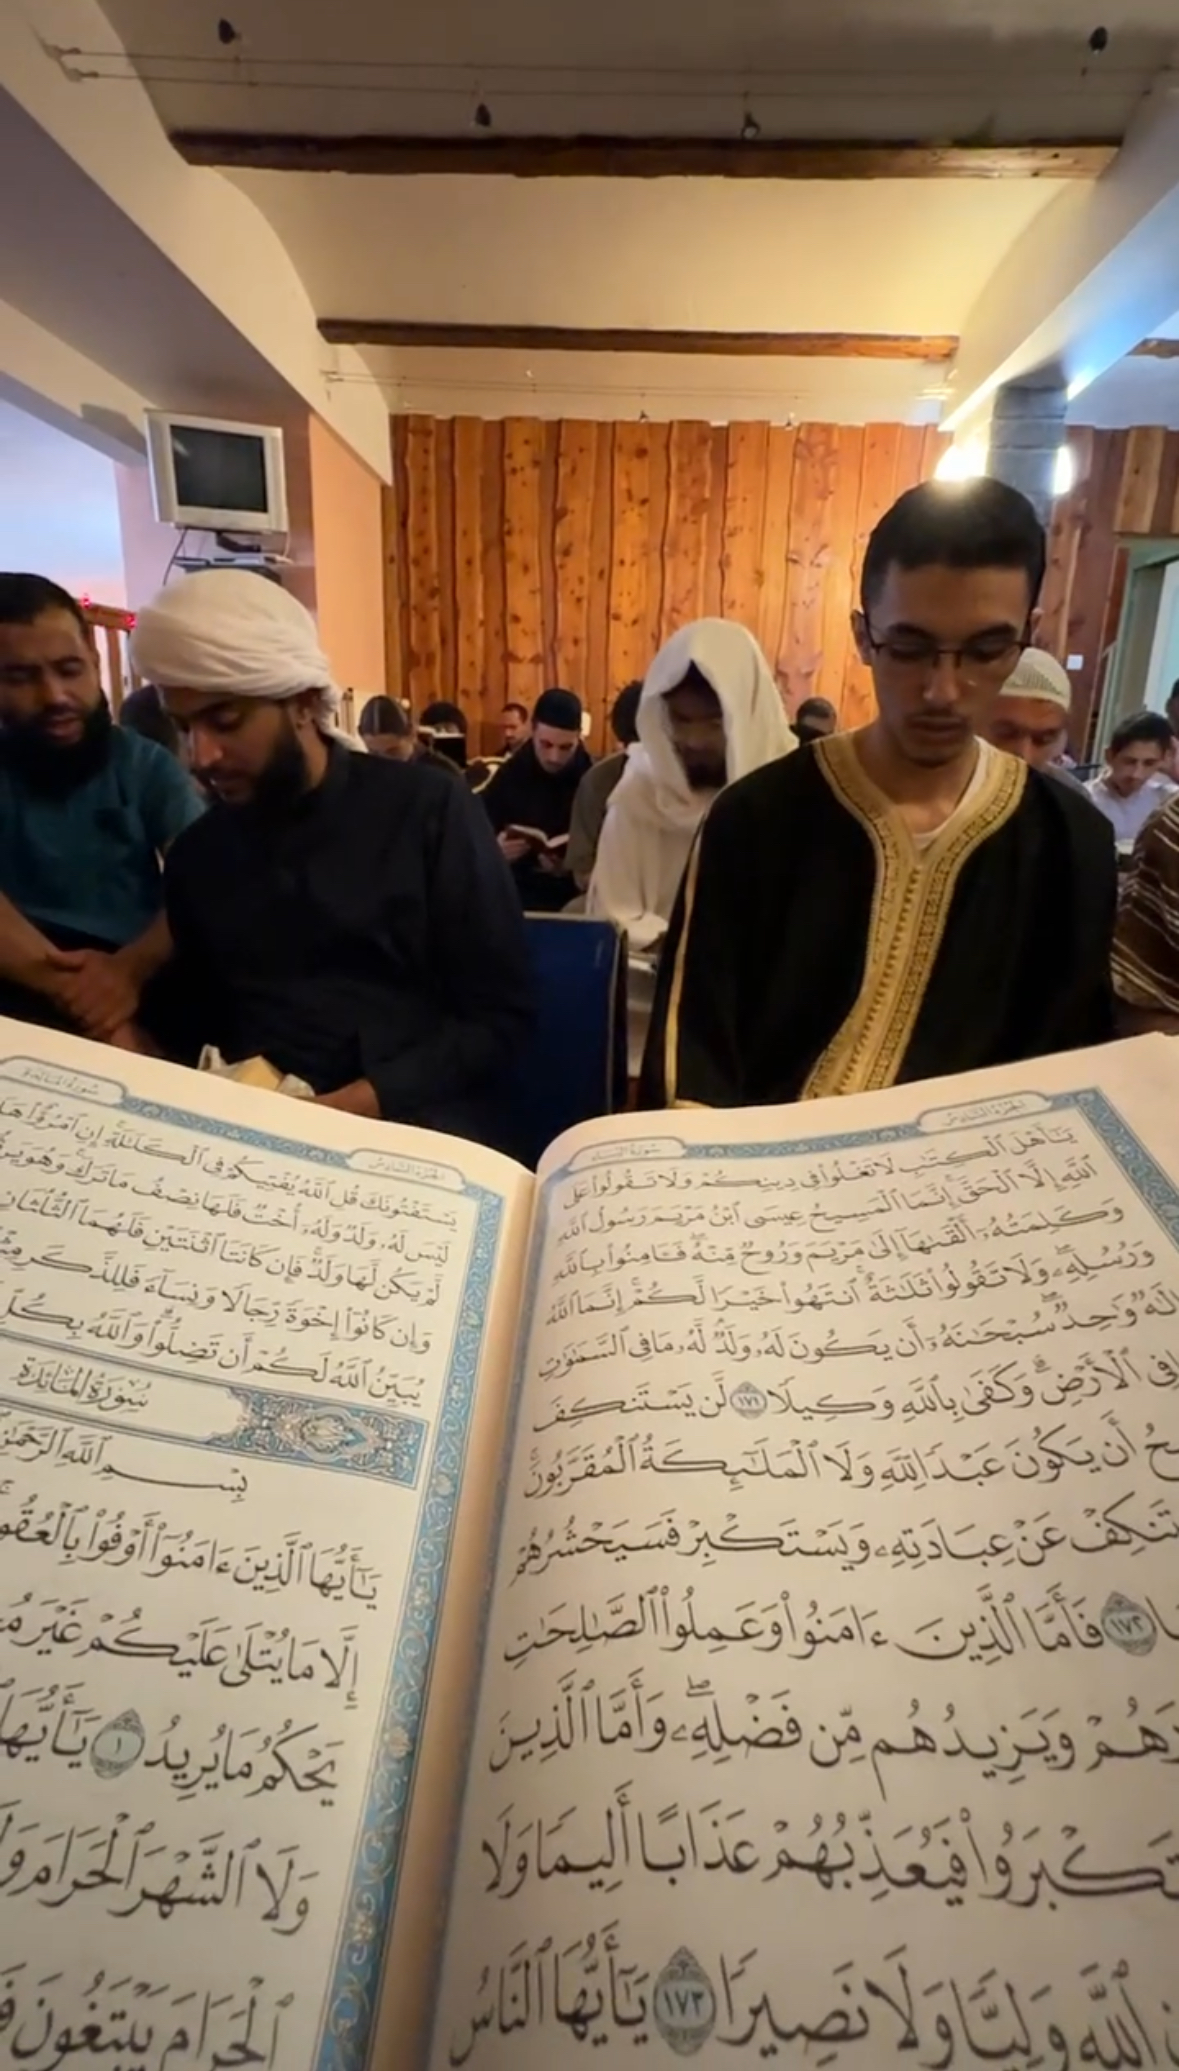 سورة النساء
الجزء السادس
يَٰٓأَهۡلَ ٱلۡكِتَٰبِ لَا تَغۡلُواْ فِي دِينِكُمۡ وَلَا تَقُولُواْ عَلَى
ٱللَّهِ إِلَّا ٱلۡحَقَّۚ إِنَّمَا ٱلۡمَسِيحُ عِيسَى ٱبۡنُ مَرۡيَمَ رَسُولُ ٱللَّهِ
وَكَلِمَتُهُۥٓ أَلۡقَىٰهَآ إِلَىٰ مَرۡيَمَ وَرُوحٞ مِّنۡهُۖ فَـَٔامِنُواْ بِٱللَّهِ
وَرُسُلِهِۦۖ وَلَا تَقُولُواْ ثَلَٰثَةٌۚ ٱنتَهُواْ خَيۡرٗا لَّكُمۡۚ إِنَّمَا ٱللَّهُ
إِلَٰهٞ وَٰحِدٞۖ سُبۡحَٰنَهُۥٓ أَن يَكُونَ لَهُۥ وَلَدٞۘ لَّهُۥ مَا فِي ٱلسَّمَٰوَٰتِ
فِي ٱلۡأَرۡضِۗ وَكَفَىٰ بِٱللَّهِ وَكِيلٗا ١٧١ لَّن يَسۡتَنكِفَ
أَن يَكُونَ عَبۡدٗا لِّلَّهِ وَلَا ٱلۡمَلَٰٓئِكَةُ ٱلۡمُقَرَّبُونَۚ
عَنۡ عِبَادَتِهِۦ وَيَسۡتَكۡبِرۡ فَسَيَحۡشُرُهُمۡ
١٧٢ فَأَمَّا ٱلَّذِينَ ءَامَنُواْ وَعَمِلُواْ ٱلصَّٰلِحَٰتِ
وَيَزِيدُهُم مِّن فَضۡلِهِۦۖ وَأَمَّا ٱلَّذِينَ
فَيُعَذِّبُهُمۡ عَذَابًا أَلِيمٗا وَلَا
ٱللَّهِ وَلِيّٗا وَلَا نَصِيرٗا ١٧٣ يَٰٓأَيُّهَا ٱلنَّاسُ
سورة المائدة
الجزء السادس
يَسۡتَفۡتُونَكَ قُلِ ٱللَّهُ يُفۡتِيكُمۡ فِي ٱلۡكَلَٰلَةِۚ إِنِ ٱمۡرُؤٌاْ
لَيۡسَ لَهُۥ وَلَدٞ وَلَهُۥٓ أُخۡتٞ فَلَهَا نِصۡفُ مَا تَرَكَۚ وَهُوَ
لَّمۡ يَكُن لَّهَا وَلَدٞۚ فَإِن كَانَتَا ٱثۡنَتَيۡنِ فَلَهُمَا ٱلثُّلُثَانِ
وَإِن كَانُوٓاْ إِخۡوَةٗ رِّجَالٗا وَنِسَآءٗ فَلِلذَّكَرِ
يُبَيِّنُ ٱللَّهُ لَكُمۡ أَن تَضِلُّواْۗ وَٱللَّهُ بِكُلِّ
سُورَةُ المَائدَة
بِسۡمِ ٱللَّهِ ٱلرَّحۡمَٰنِ
يَٰٓأَيُّهَا ٱلَّذِينَ ءَامَنُوٓاْ أَوۡفُواْ بِٱلۡعُقُودِ
إِلَّا مَا يُتۡلَىٰ عَلَيۡكُمۡ غَيۡرَ
يَحۡكُمُ مَا يُرِيدُ ١ يَٰٓأَيُّهَا
وَلَا ٱلشَّهۡرَ ٱلۡحَرَامَ وَلَا
ٱلۡحَرَامَ يَبۡتَغُونَ